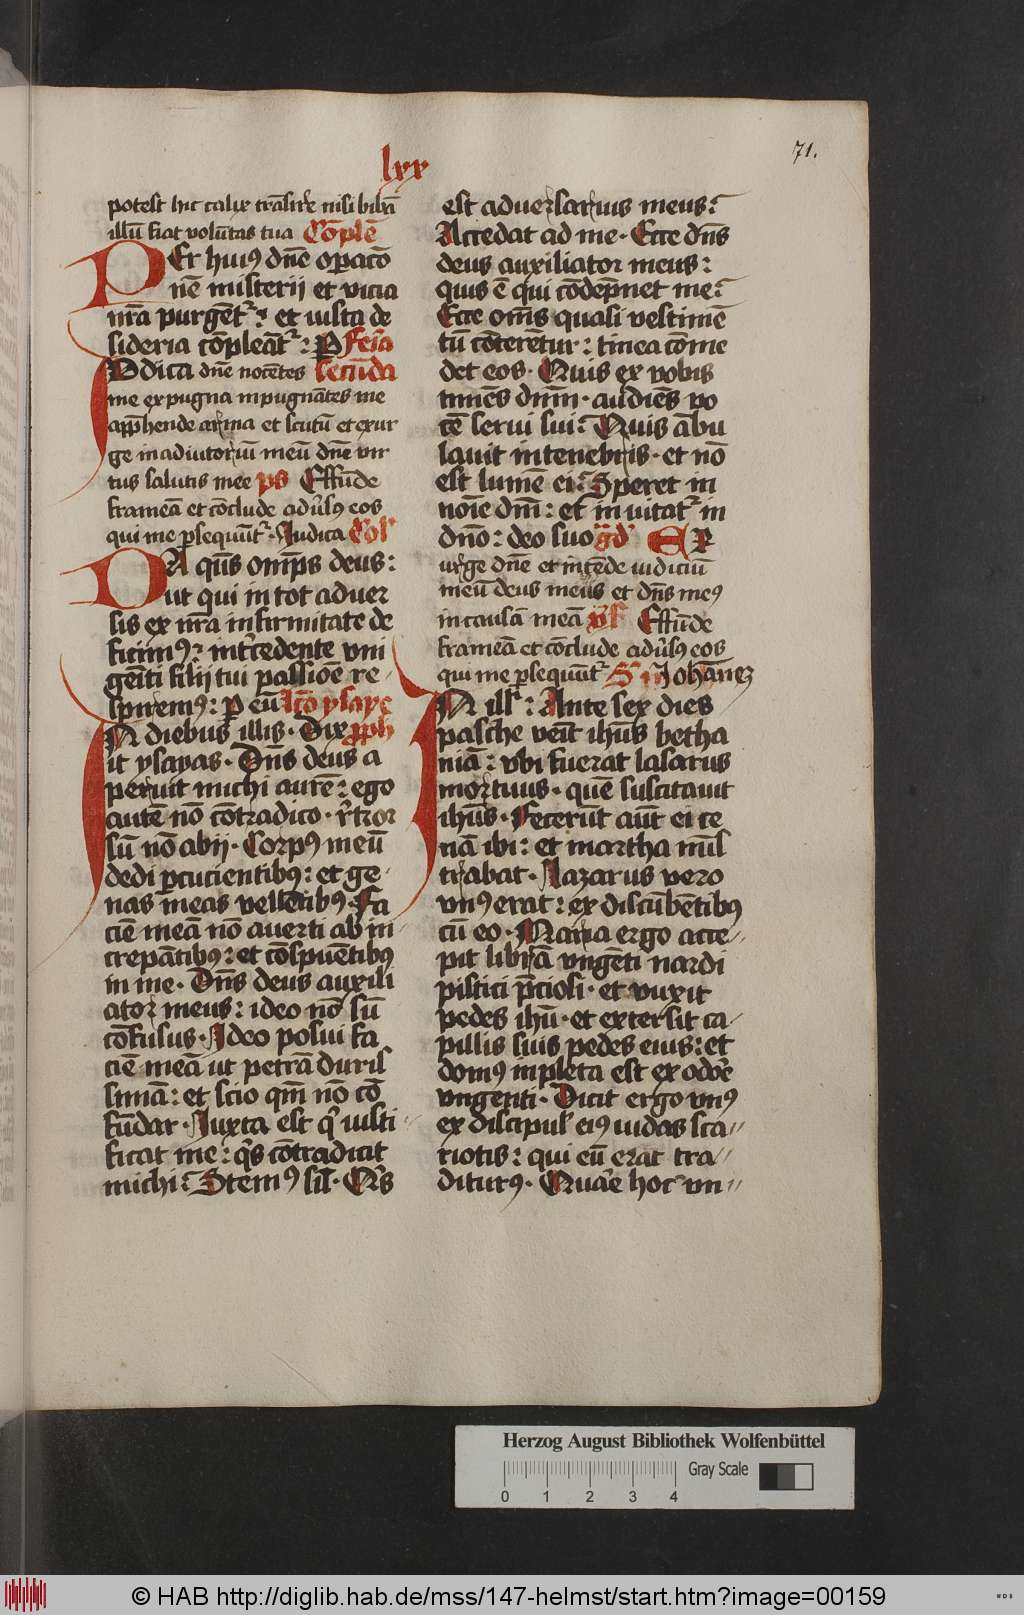 lxx
71.
potest hic calix trāsire nisi bibā
illū fiat volūtas tua Cōplē
PEr hui9 dn̄e opacō
nē misterij et vicia
nr̄a purgēt᷑ : et iusta de
sideria cōpleāt᷑ : P Feria
Judica dn̄e nocētes secūda
me expugna inpugnātes me
appͤhende arma et scutū et exur
ge in adiutoriū meū dn̄e vir
tus salutis mee ps Effūde
frameā et cōclude aduͤs9 eos
qui me psequūt᷑ · Judica Col'
DA qs̄ omps̄ deus :
ut qui in tot aduer
sis ex nr̄a infirmitate de
ficim9 : int͛cedente vni
geīti filij tui passiōe re-
spirem9 : p eū Lcō ysaye
IN diebus illis · Dix͛ pph
it ysayas · Dn̄s deus a
peruit michi aurē : ego
autē nō cōtradico · r͛tror
sū nō abij · Corp9 meū
dedi pcucientib9 : et ge-
nas meas vellētib9 · Fa
ciē meā nō auerti ab in
crepātib9 : et cōspuētib9
in me · Dn̄s deus auxili
ator meus : ideo nō sū
cōfusus · Ideo posui fa
ciē meā ut petrā duris
simā : et scio qm̄ nō cō
fūdar · Juxta est q' iusti
ficat me : q's cōtradicit
michi : Stem9 sil̄ · Q's
est aduersarius meus :
Accedat ad me · Ecce dn̄s
deus auxiliator meus :
quis ē qui cōdēpnet me :
Ecce om̄s quasi vestimē
tū cōterētur : tinea come
det eos · Quis ex vobis
timēs dn̄m · audiēs vo
cē serui sui : Quis ābu
lauit in tenebris · et nō
est lumē ei : Speret in
noīe dn̄i : et inuitat᷑ in
dn̄o : deo suo gd' EX
urge dn̄e et intēde iudiciū
meū deus meus et dn̄s me9
in causā meā vs' Effūde
frameā et cōclude aduͤs9 eos
qui me psequūt᷑ S Johānez
IN ill' : Ante sex dies
pasche veīt ihūs betha
niā : vbi fuerat lasarus
mortuus · quē suscitauit
ihūs · Fecerūt aūt ei ce
nā ibi : et martha mīs
trabat · Lazarus vero
vn9 erat : ex discūbētib9
cū eo · Maria ergo acce-
pit librā vngēti nardi
pistici pͤciosi · et vnxit
pedes ihū · et extersit ca-
pillis suis pedes eius : et
dom9 inpleta est ex odoͤe
vngenti · Dicit ergo vn9
ex discipul' ei9 iudas sca-
riotis : qui eū erat tra-
ditur9 · Quare hoc vn-
Herzog August Bibliothek Wolfenbüttel
Gray Scale
0 1 2 3 4
© HAB http://diglib.hab.de/mss/147-helmst/start.htm?image=00159